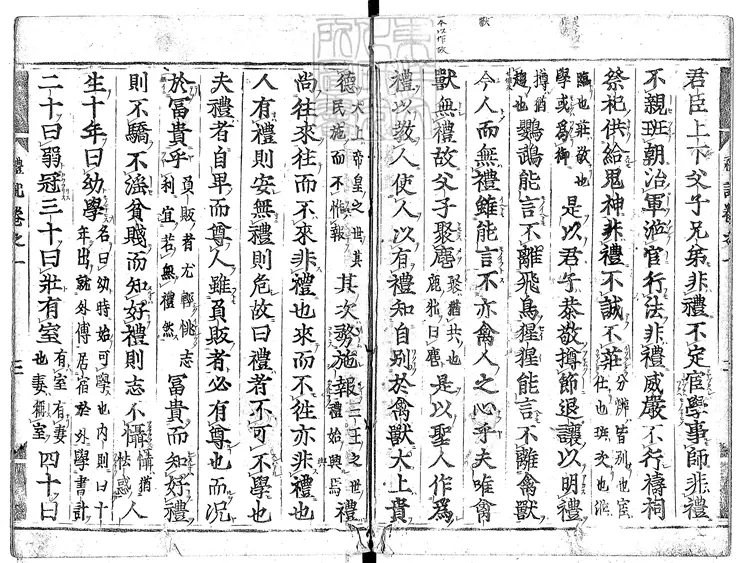 君臣上下父子兄弟非禮不定宦學事師非禮
不親班朝治軍涖官行法非禮威嚴不行禱祠
祭祀供給鬼神非禮不誠不莊分辨皆別也宦仕也班次也涖
臨也莊敬也學或爲御是以君子恭敬撙節退讓以明禮
撙猶趨也鸚鵡能言不離飛鳥猩猩能言不離禽獸
今人而無禮雖能言不亦禽人之心乎夫唯禽
獸無禮故父子聚麀聚猶共也鹿牝曰麀是以聖人作爲
禮以教人使人以有禮知自別於禽獸大上貴
德大上帝皇之世其民施而不惟報其次務施報三王之世禮始興焉禮
尚往來往而不來非禮也來而不徃亦非禮也
人有禮則安無禮則危故曰禮者不可不學也
夫禮者自卑而尊人雖負販者必有尊也而况
於冨貴乎負販者尤輕恌志利宜若無禮然冨貴而知好禮
則不驕不滛貧賤而知好禮則志不懾懾猶怯惑人
生十年曰幼學名曰幼時始可學也内則曰十年出就外傅居宿於外學書計
二十曰弱冠三十曰壯有室有室有妻也妻稱室四十曰
禮記卷之一
三